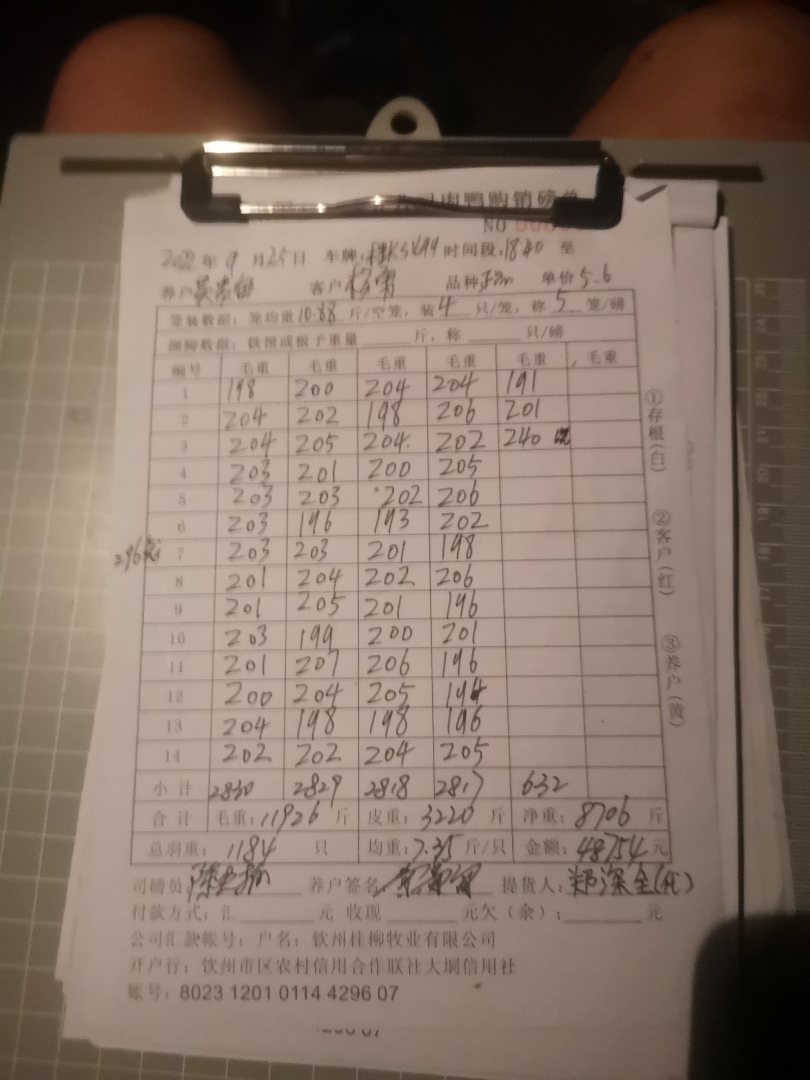 肉鸭购销磅单
NO
年9月25日 车牌: 时间段:1840 至
养户 客户 杨 品种 单价5.6
笼装数据：笼均重10.88斤/空笼，装4只/笼，称5笼/磅
捆脚数据：铁筐或板子重量 斤，称 只/磅
编号 毛重 毛重 毛重 毛重 毛重 毛重
1 198 200 204 204 191
2 204 202 198 206 201
3 204 205 204 202 240
4 203 201 200 205
5 203 203 202 206
6 203 196 193 202
296 7 203 203 201 198
8 201 204 202 206
9 201 205 201 196
10 203 199 200 201
11 201 207 206 196
12 200 204 205 194
13 204 198 198 196
14 202 202 204 205
小计 2830 2829 2818 2817 632
合计 毛重:11926斤 皮重:3220斤 净重:8706斤
总羽重:1184只 均重:7.35斤/只 金额:48754元
司磅员 养户签名 提货人:郑深全(代)
付款方式：汇 元 收现 元欠（余）: 元
公司汇款帐号：户名：钦州桂柳牧业有限公司
开户行：钦州市区农村信用合作联社大垌信用社
账号：8023 1201 0114 4296 07
①存根(白)
②客户(红)
③养户(黄)